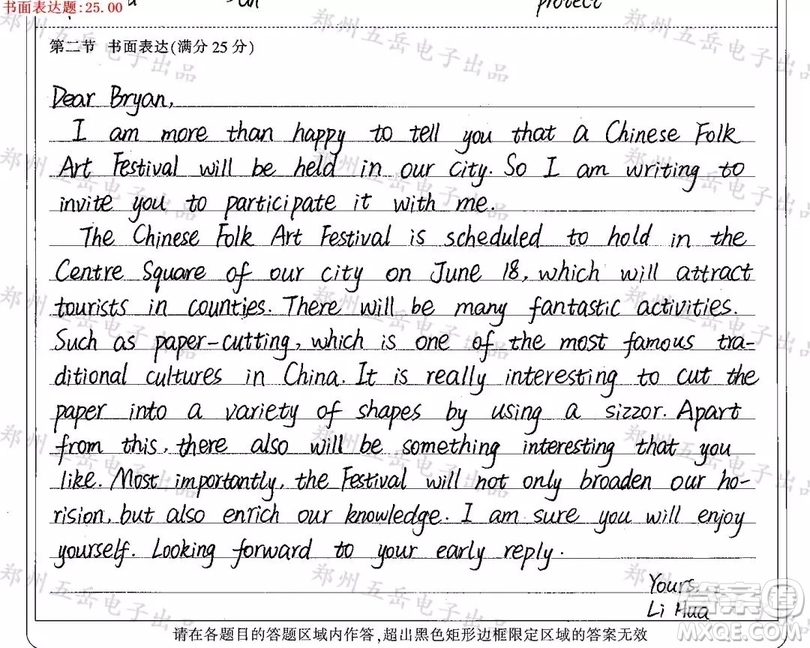 书面表达题:25.00
protect
第二节 书面表达(满分25分)
Dear Bryan,
I am more than happy to tell you that a Chinese Folk
Art Festival will be held in our city. So I am writing to
invite you to participate it with me.
The Chinese Folk Art Festival is scheduled to hold in the
Centre Square of our city on June 18, which will attract
tourists in counties. There will be many fantastic activities.
Such as paper-cutting, which is one of the most famous tra-
ditional cultures in China. It is really interesting to cut the
paper into a variety of shapes by using a sizzor. Apart
from this, there also will be something interesting that you
like. Most importantly, the Festival will not only broaden our ho-
rision, but also enrich our knowledge. I am sure you will enjoy
yourself. Looking forward to your early reply.
Yours,
Li Hua
请在各题目的答题区域内作答,超出黑色矩形边框限定区域的答案无效
郑州五岳电子出品
答案圈
MXQE.COM